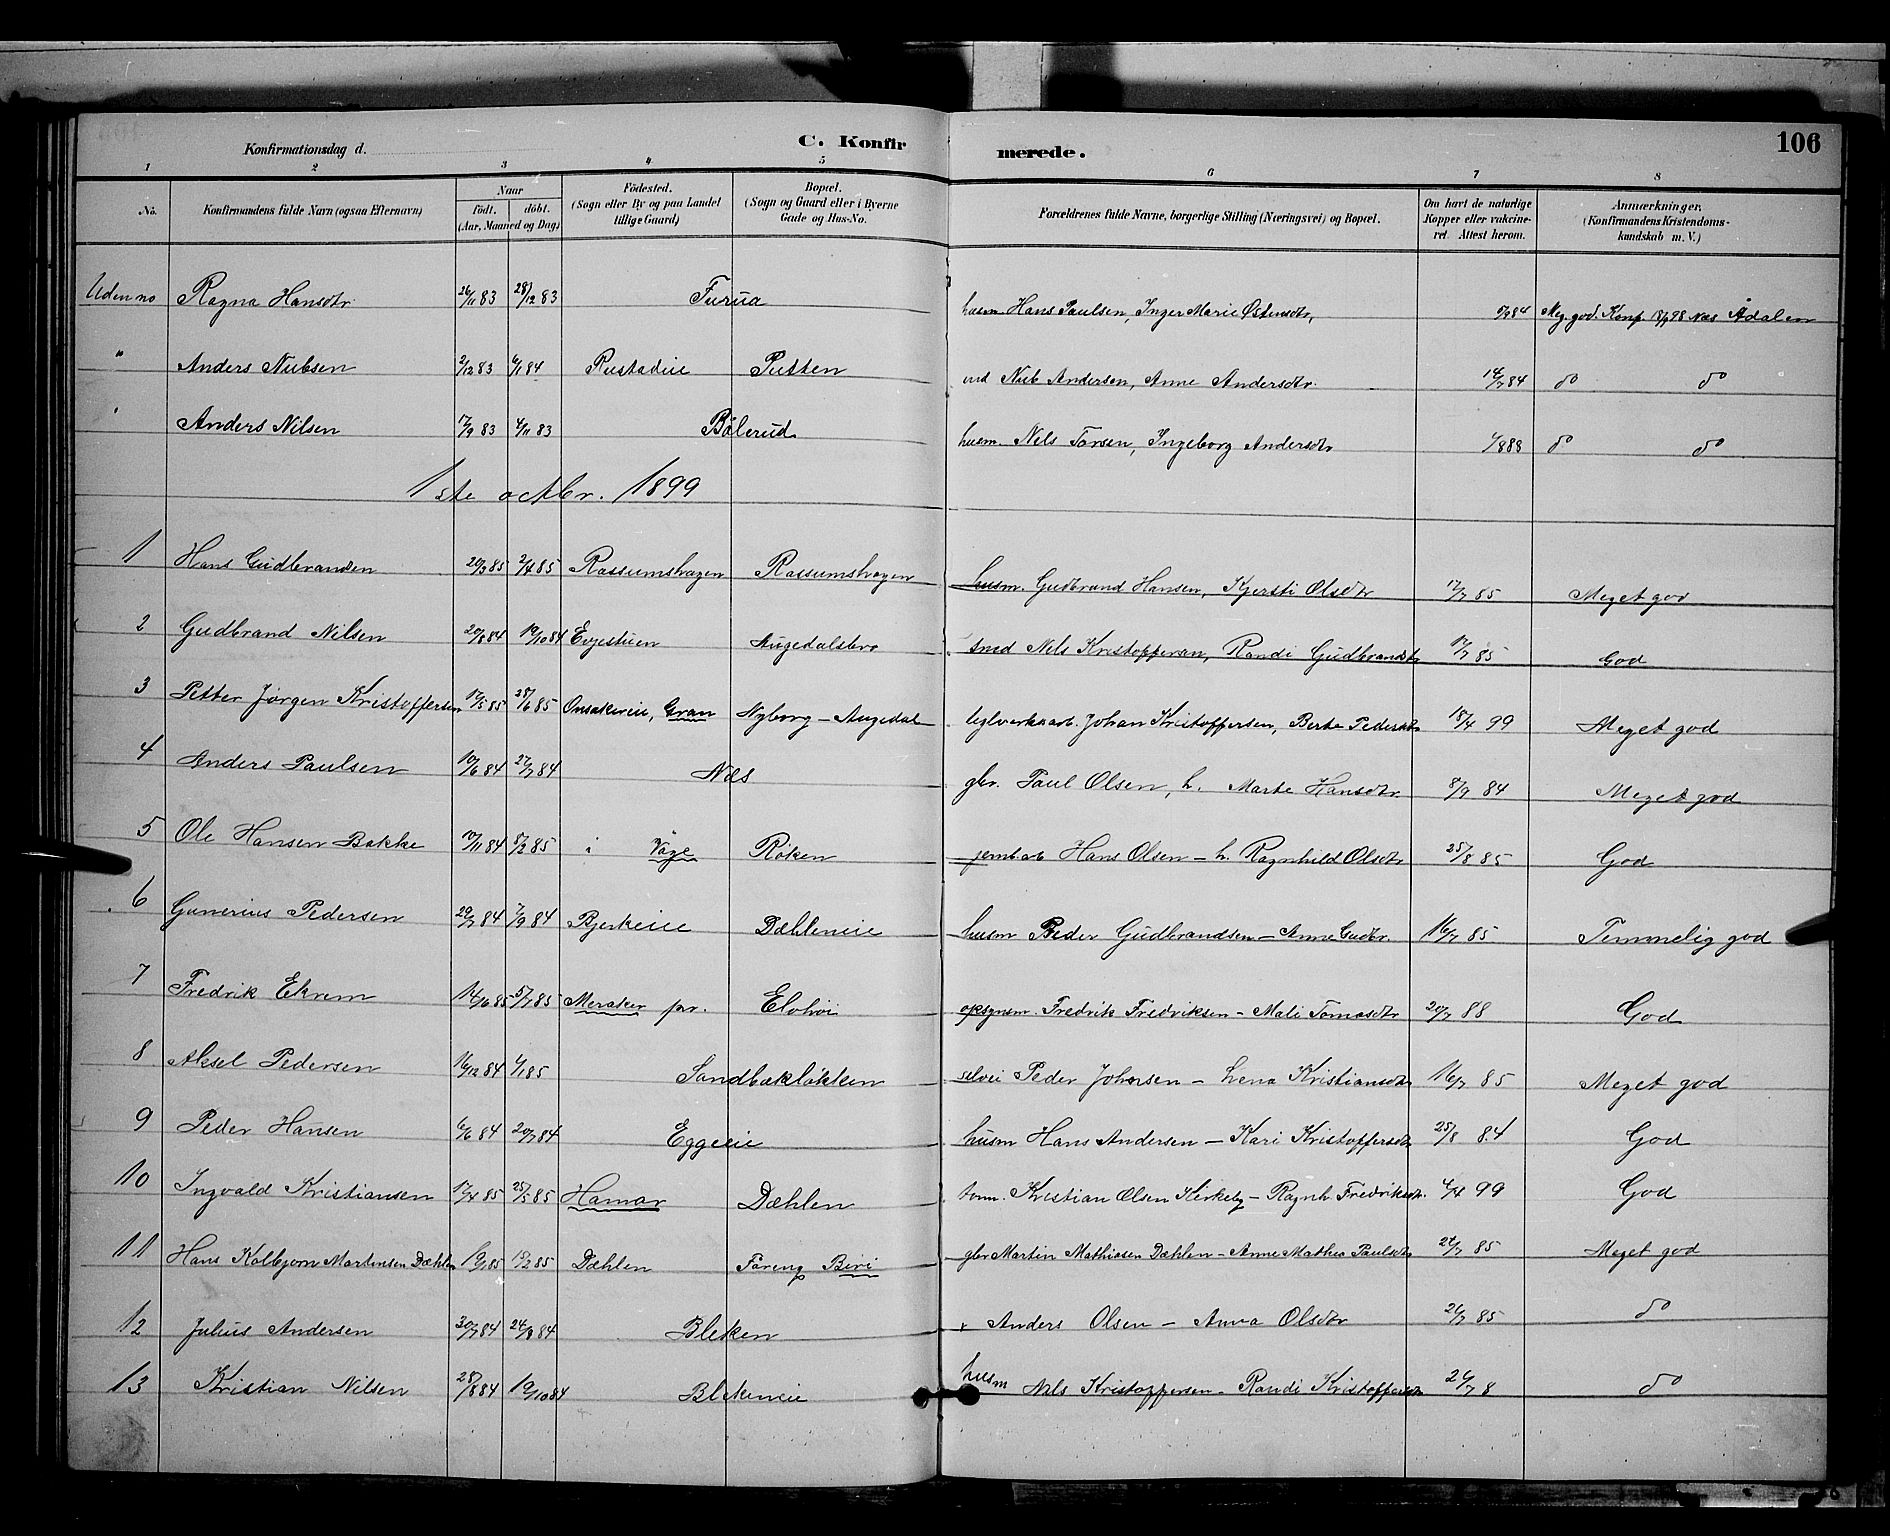 106
Konfirmationsdag d. C. Konfirmerede.
1 2 3 4 5 6 7 8
No. Konfirmandens fulde Navn (ogsaa Efternavn) Naar födt. döbt. (Aar, Maaned og Dag) Födested. (Sogn eller By og paa Landet tillige Gaard) Bopæl. (Sogn og Gaard eller i Byerne Gade og Hus-No. Forældrenes fulde Navne, borgerlige Stilling (Næringsvei) og Bopæl. Om havt de naturlige Kopper eller vakcineret. Attest herom. Anmærkninger, (Konfirmandens Kristendomskundskab m. V.)
Uden no Ragna Hansdtr. 26/11 83 28/12 83 Furua husm. Hans Paulsen, Inger Marie Østensdtr, 84 Meg. god. Konf. 98 Næs Ådalen
" Anders Nubsen 2/12 83 6/1 84 Rustadeie Putten Nub Andersen, Anne Andersdtr. 14/7 84 do do
" Anders Nilsen 17/9 83 4/11 83 Bölerud husm. Nels Torsen, Ingeborg Andersdtr do do
1ste octbr. 1899
1 Hans Gudbrandsen 20/3 85 2/4 85 Rassumshagen Rassumshagen husm. Gudbrand Hansen, Kjersti Olsdtr 17/7 85 Meget god
2 Gudbrand Nilsen 20/8 84 19/10 84 Evjestuen Augedalsbro smed Nels Kristoffersen, Randi Gudbrandsdtr 17/7 85 God
3 Petter Jørgen Kristoffersen 17/5 85 28/6 85 Onsakereie, Gran Nyborg - Augedal teglverksarb. Johan Kristoffersen, Berte Pedersdtr 18/4 99 Meget god
4 Anders Paulsen 10/6 84 27/7 84 Næs gbr. Paul Olsen, h. Marte Hansdtr. 8/9 84 Meget god
5 Ole Hansen Bakke 10/11 84 8/2 85 i Våge Røken jernb.arb Hans Olsen - h. Ragnhild Olsdtr 25/8 85 God
6 Gunerius Pedersen 29/7 84 7/9 84 Bjerkeeie Dæhleneie husm Peder Gudbrandsen - Anne Gudbr. 16/7 85 Temmelig god
7 Fredrik Ekrem 14/6 85 5/7 85 Meraker pr. opsynsm. Fredrik Fredriksen - Mali Tomasdtr 20/7 88 God
8 Aksel Pedersen 16/12 84 1/1 85 Sandbækløkken selvei Peder Johnsen - Lena Kristiansdtr 16/7 85 Meget god
9 Peder Hansen 6/6 84 20/7 84 Eggeeie husm Hans Andersen - Kari Kristoffersdtr 25/8 84 God
10 Ingvald Kristiansen 17/4 85 25/5 85 Hamar Dæhlen tom. Kristian Olsen Kirkeby - Ragnh. Fredriksdtr. 4/4 99 God
11 Hans Kolbjørn Martinsen Dæhlen 85 15/2 85 Dæhlen Biri gbr Martin Mathiasen Dæhlen - Anne Mathea Paulsdtr 24/7 85 Meget god
12 Julius Andersen 30/7 84 24/8 84 Bleken Anders Olsen - Anna Olsdtr 26/7 85 do
13 Kristian Nilsen 28/8 84 19/10 84 Blekeneie husm Nils Kristoffersen - Randi Kristoffersdtr 26/7 8 do